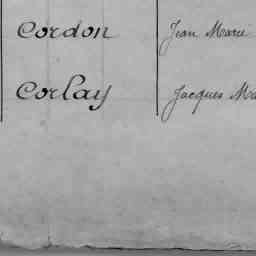 Cordon Jean Marie
Corlay Jacques Ma